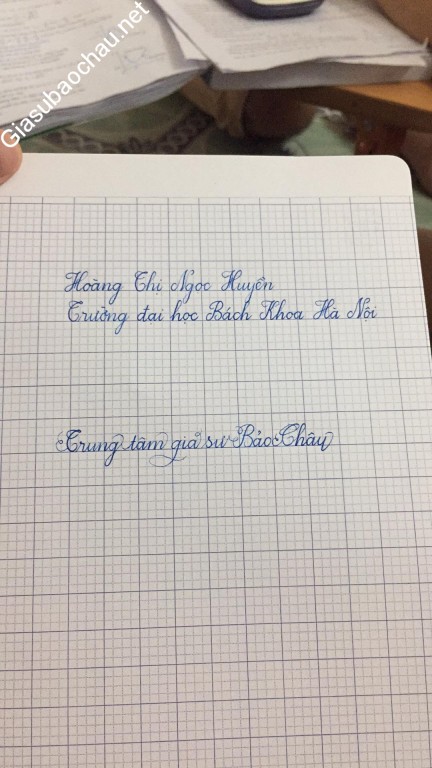 Giasubaochau.net
Hoàng Thị Ngọc Huyền
Trường đại học Bách Khoa Hà Nội
Trung tâm gia sư Bảo Châu